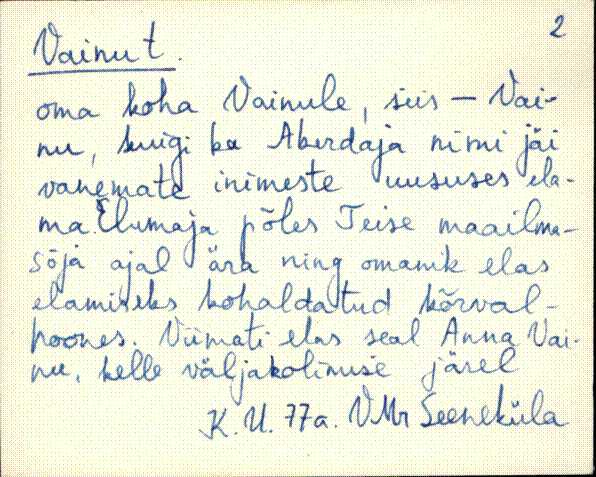 2
Vainu t.
oma koha Vainule, siis - Vai-
nu, kuigi ka Aberdaja nimi jäi
vanemate inimeste uususes ela-
ma. Elumaja põles Teise maailma-
sõja ajal ära ning omanik elas
elamiseks kohaldatud kõrval-
hoones. Viimati elas seal Anna Vai-
nu, kelle väljakolimise järel
K. U. 77a. VMr Seeneküla